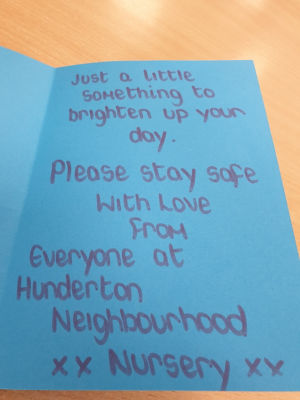 Just a little
something to
brighten up your
day.
Please stay safe
With Love
From
Everyone at
Hunderton
Neighbourhood
x x Nursery x x